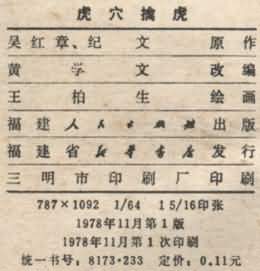 虎穴擒虎
吴红章、纪文 原作
黄学文 改编
王柏生 绘画
福建人民出版社出版
福建省新华书店发行
三明市印刷厂印刷
787×1092 1/64 1 5/16印张
1978年11月第1版
1978年11月第1次印刷
统一书号：8173·233 定价：0.11元